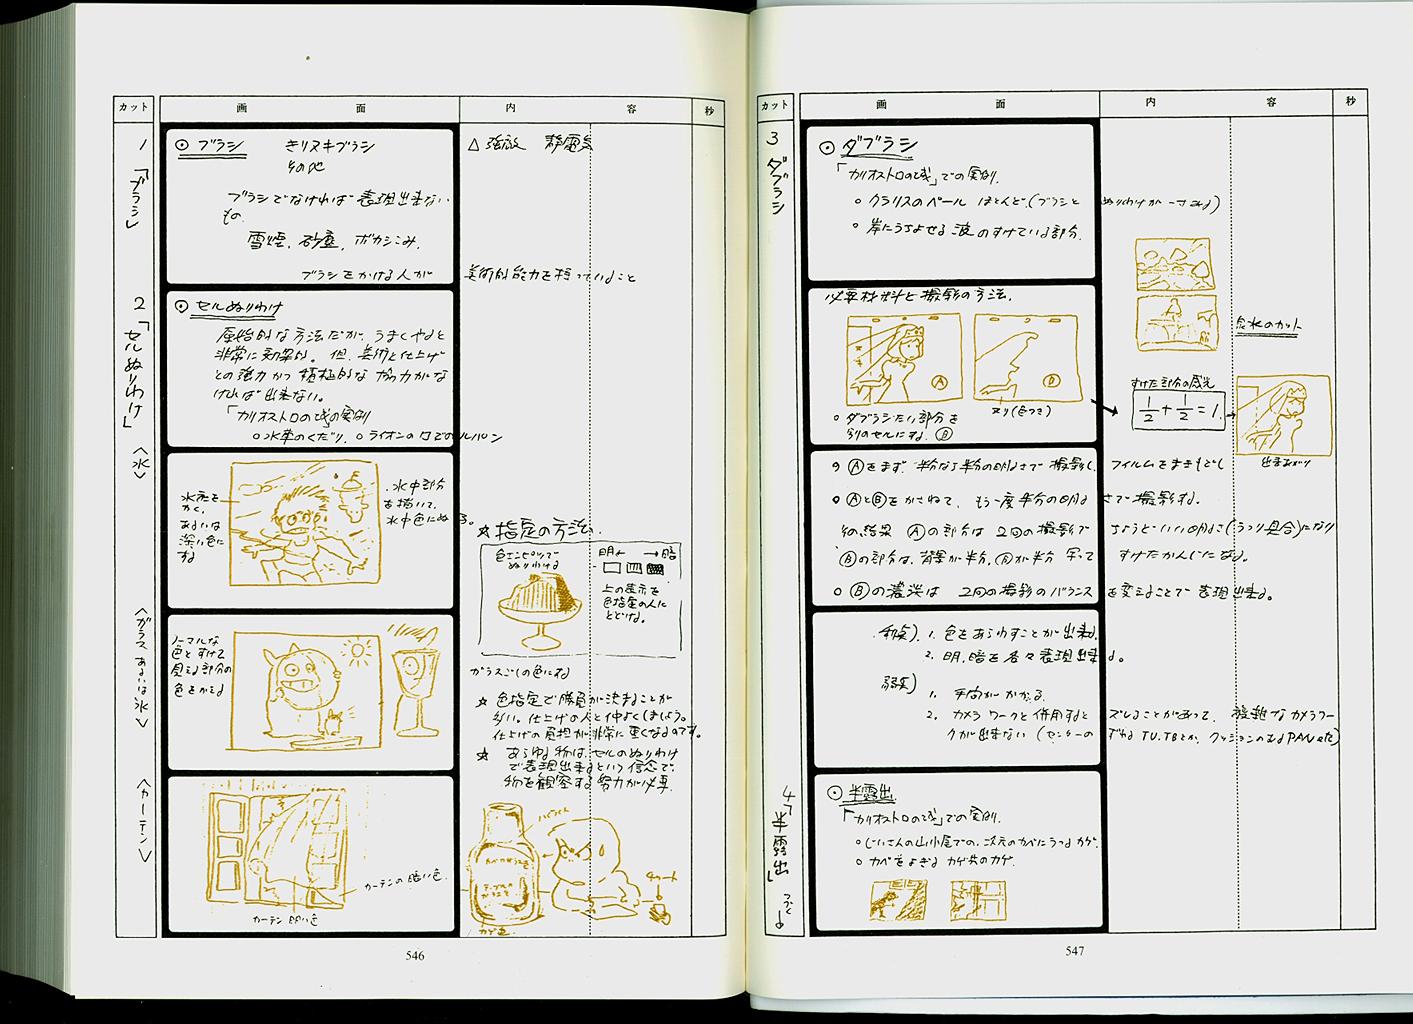 カット
画面
内容
秒
1 「ブラシ」
⊙ ブラシ キリヌキブラシ
その他
ブラシでなければ表現出来ない
もの。
雪煙、砂塵、ボカシこみ、
ブラシをかける人が 美術的能力を持っていること
△ 強敵 静電気
2 「セルぬりわけ」
⊙ セルぬりわけ
原始的な方法だが、うまくやると
非常に効果的。但、美術と仕上げ
との強力かつ積極的な協力がな
ければ出来ない。
「カリオストロの城」の実例
○水車のくだり、○ライオンの口でのルパン
〈水〉
水底を
かく、
あるいは
深い色に
する
水中部分
を描いて、
水中色にぬる。
〈ガラスあるいは氷〉
ノーマルな
色とすけて
見える部分の
色をかえる
〈カーテン〉
カーテンの暗い色
カーテン明い色
☆指定の方法
色エンピツで
ぬりわける
明← →暗
上の表示を
色指定の人に
とどける。
ガラスごしの色にする
☆ 色指定で勝負が決まることが
多い。仕上げの人と仲よくしましょう。
仕上げの負担が非常に重くなるのです。
☆ あらゆる物は、セルのぬりわけ
で表現出来るという信念で、
物を観察する努力が必要
カゲ色
546
カット
画面
内容
秒
3 ダブラシ
⊙ ダブラシ
「カリオストロの城」での実例。
○ クラリスのベール ほとんど。(ブラシと ぬりわけが一寸ある)
○ 岸にうちよせる波のすけている部分
必要材料と撮影の方法。
Ⓐ
Ⓑ
ヌリ(色つき)
○ ダブラシたい部分を
別のセルにする。Ⓑ
すけた部分の感光
1/2 + 1/2 = 1.
出来あがり
○ Ⓐをまず、半分の明るさで撮影し、フィルムをまきもどし
○ ⒶとⒷをかさねて、もう一度半分の明るさで撮影する。
その結果 Ⓐの部分は 2回の撮影で ちょうどいい明るさ(うつり具合)になり
Ⓑの部分は、背景が半分、Ⓑが半分 写って すけたかんじになる。
○ Ⓑの濃淡は 2回の撮影のバランスを変えることで 表現出来る。
利点) 1. 色をあらわすことが出来る。
2. 明、暗を各々表現出来る。
弱点)
1. 手間がかかる
2. カメラワークと併用すると ズレることがあって、複雑なカメラワー
クが出来ない (センターの ずれる TU.TBとか、クッションのあるPAN etc)
4 「半露出」
つづく
⊙ 半露出
「カリオストロの城」での実例。
○じいさんの山小屋での、次元のカベにうつるカゲ。
○ カベをよぎるカゲ共のカゲ。
547